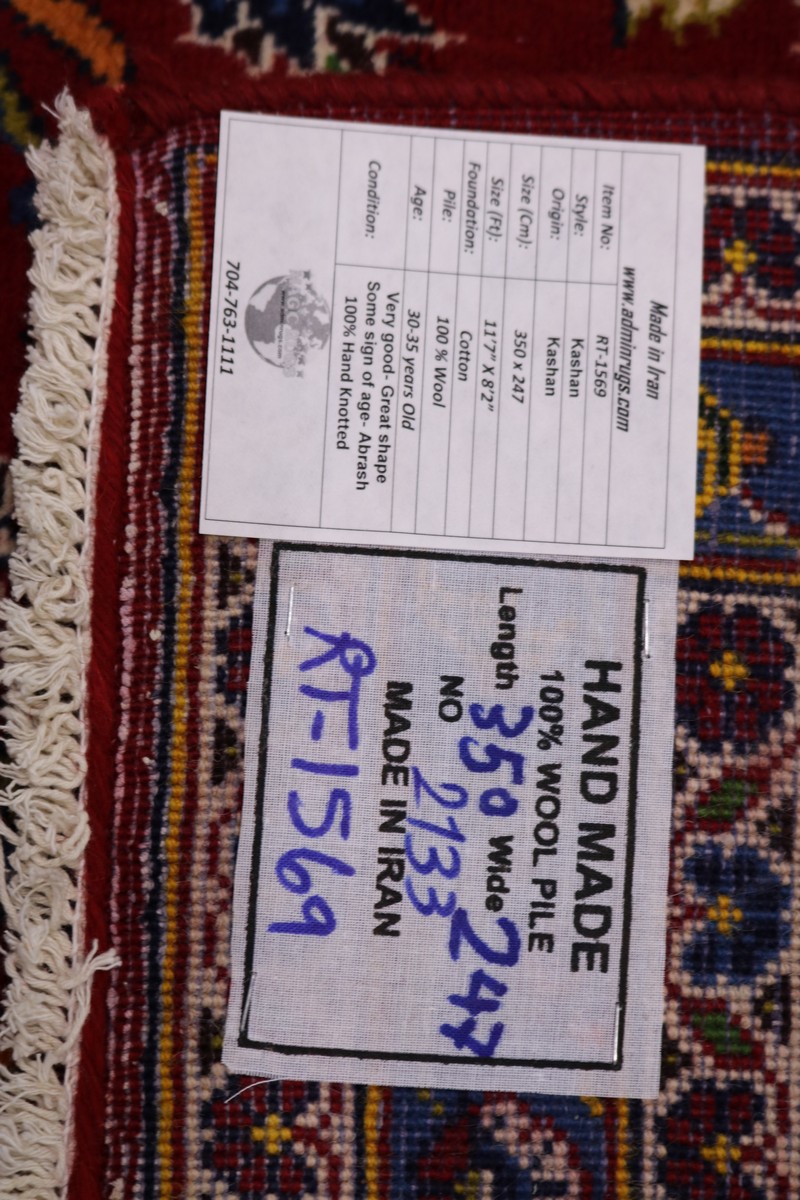 Made in Iran
www.adminrugs.com
Item No: RT-1569
Style: Kashan
Origin: Kashan
Size (Cm): 350 x 247
Size (Ft): 11'7" X 8'2"
Foundation: Cotton
Pile: 100 % Wool
Age: 30-35 years Old
Condition: Very good- Great shape
Some sign of age- Abrash
100% Hand Knotted
704-763-1111
HAND MADE
100% WOOL PILE
Length 350 Wide 247
NO 2133
MADE IN IRAN
RT-1569